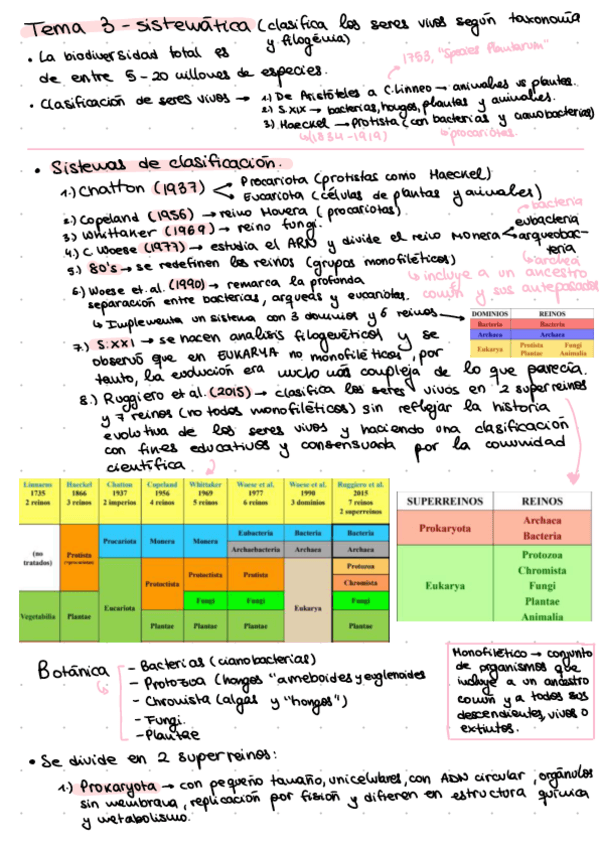 Tema 3 - sistemática (clasifica los seres vivos según taxonomía
y filogenia)
1753, "Species Plantarum"
• La biodiversidad total es
de entre 5-20 millones de especies.
• Clasificación de seres vivos → 1.) De Aristóteles a C.Linneo → animales vs plantas.
2.) S.XIX → bacterias, hongos, plantas y animales.
3.) Haeckel → Protista (con bacterias y cianobacterias)
↳ (1834-1919)
↳ procariotas.
• Sistemas de clasificación.
1.) Chatton (1937) < Procariota (protistas como Haeckel)
Eucariota (células de plantas y animales)
2.) Copeland (1956) → reino Monera (procariotas).
3.) Whittaker (1969) → reino fungi.
bacteria
4.) C. Woese (1977) → estudia el ARN y divide el reino MONERA < eubacteria
arqueobac-
teria
↳ archea
5.) 80's → se redefinen los reinos (grupos monofiléticos)
↳ incluye a un ancestro
común y sus antepasados
6.) Woese et.al. (1990) → remarca la profunda
separación entre bacterias, arqueas y eucariotas.
↳ Implementa un sistema con 3 dominios y 6 reinos →
DOMINIOS REINOS
Bacteria Bacteria
Archaea Archaea
Eukarya Protista Fungi
Plantae Animalia
7.) S.XXI → se hacen analisis filogenéticos y se
observó que en EUKARYA no monofiléticos, por
tanto, la evolución era mucho más compleja de lo que parecía.
8.) Ruggiero et al. (2015) → clasifica los seres vivos en 2 superreinos
y 7 reinos (no todos monofiléticos) sin reflejar la historia
evolutiva de los seres vivos y haciendo una clasificación
con fines educativos y consensuada por la comunidad
científica
Linnaeus Haeckel Chatton Copeland Whittaker Woese et al. Woese et al. Ruggiero et al.
1735 1866 1937 1956 1969 1977 1990 2015
2 reinos 3 reinos 2 imperios 4 reinos 5 reinos 6 reinos 3 dominios 7 reinos
2 superreinos
(no tratados) Protista Procariota Monera Monera Eubacteria Bacteria Bacteria
Archaebacteria Archaea Archaea
Protoctista Protoctista Protista Eukarya Protozoa
Chromista
Eucariota Fungi Fungi Fungi
Vegetabilia Plantae Plantae Plantae Plantae Plantae
SUPERREINOS REINOS
Prokaryota Archaea
Bacteria
Eukarya Protozoa
Chromista
Fungi
Plantae
Animalia
Botánica
- Bacterias (cianobacterias)
- Protozoa (hongos "ameboides y euglenoides
- Chromista (algas y "hongos")
- Fungi.
- Plantae
Monofilético → conjunto
de organismos que
incluye a un ancestro
común y a todos sus
descendientes, vivos o
extintos.
• Se divide en 2 superreinos:
1.) Prokaryota → con pequeño tamaño, unicelulares, con ADN circular, orgánulos
sin membrana, replicación por fisión y difieren en estructura química
y metabolismo.